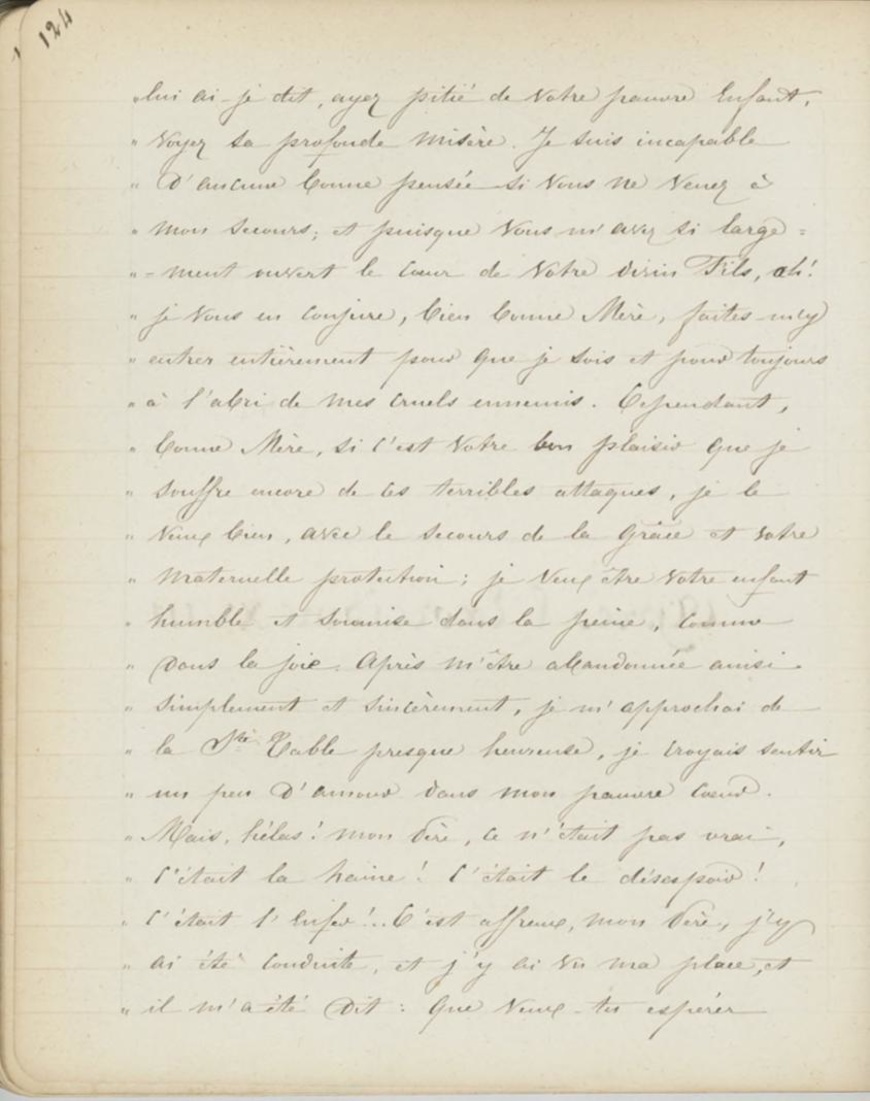 124
„ lui ai-je dit, ayez pitié de votre pauvre Enfant,
„ Voyez sa profonde misère. Je suis incapable
„ D'aucune bonne pensée si vous ne venez à
„ mon secours; et puisque vous m'avez si large=
„ -ment ouvert le Cœur de votre divin Fils, ah!
„ je vous en conjure, bien bonne Mère, faites-m'y
„ entrer entièrement pour que je sois et pour toujours
„ à l'abri de mes cruels ennemis. Cependant,
„ bonne Mère, si c'est votre bon plaisir que je
„ souffre encore de ces terribles attaques, je le
„ veux bien, avec le secours de la Grâce et votre
„ maternelle protection; je veux être votre enfant
„ humble et soumise dans la peine, comme
„ Dans la joie. Après m'être abandonnée ainsi
„ simplement et sincèrement, je m'approchai de
„ la Ste Table presque heureuse, je croyais sentir
„ un peu d'amour dans mon pauvre Cœur.
„ Mais, hélas! mon Père, ce n'était pas vrai,
„ C'était la haine! C'était le désespoir!
„ C'était l'Enfer!.. C'est affreux, mon Père, j'y
„ ai été conduite, et j'y ai vu ma place, et
„ il m'a été Dit : Que veux-tu espérer